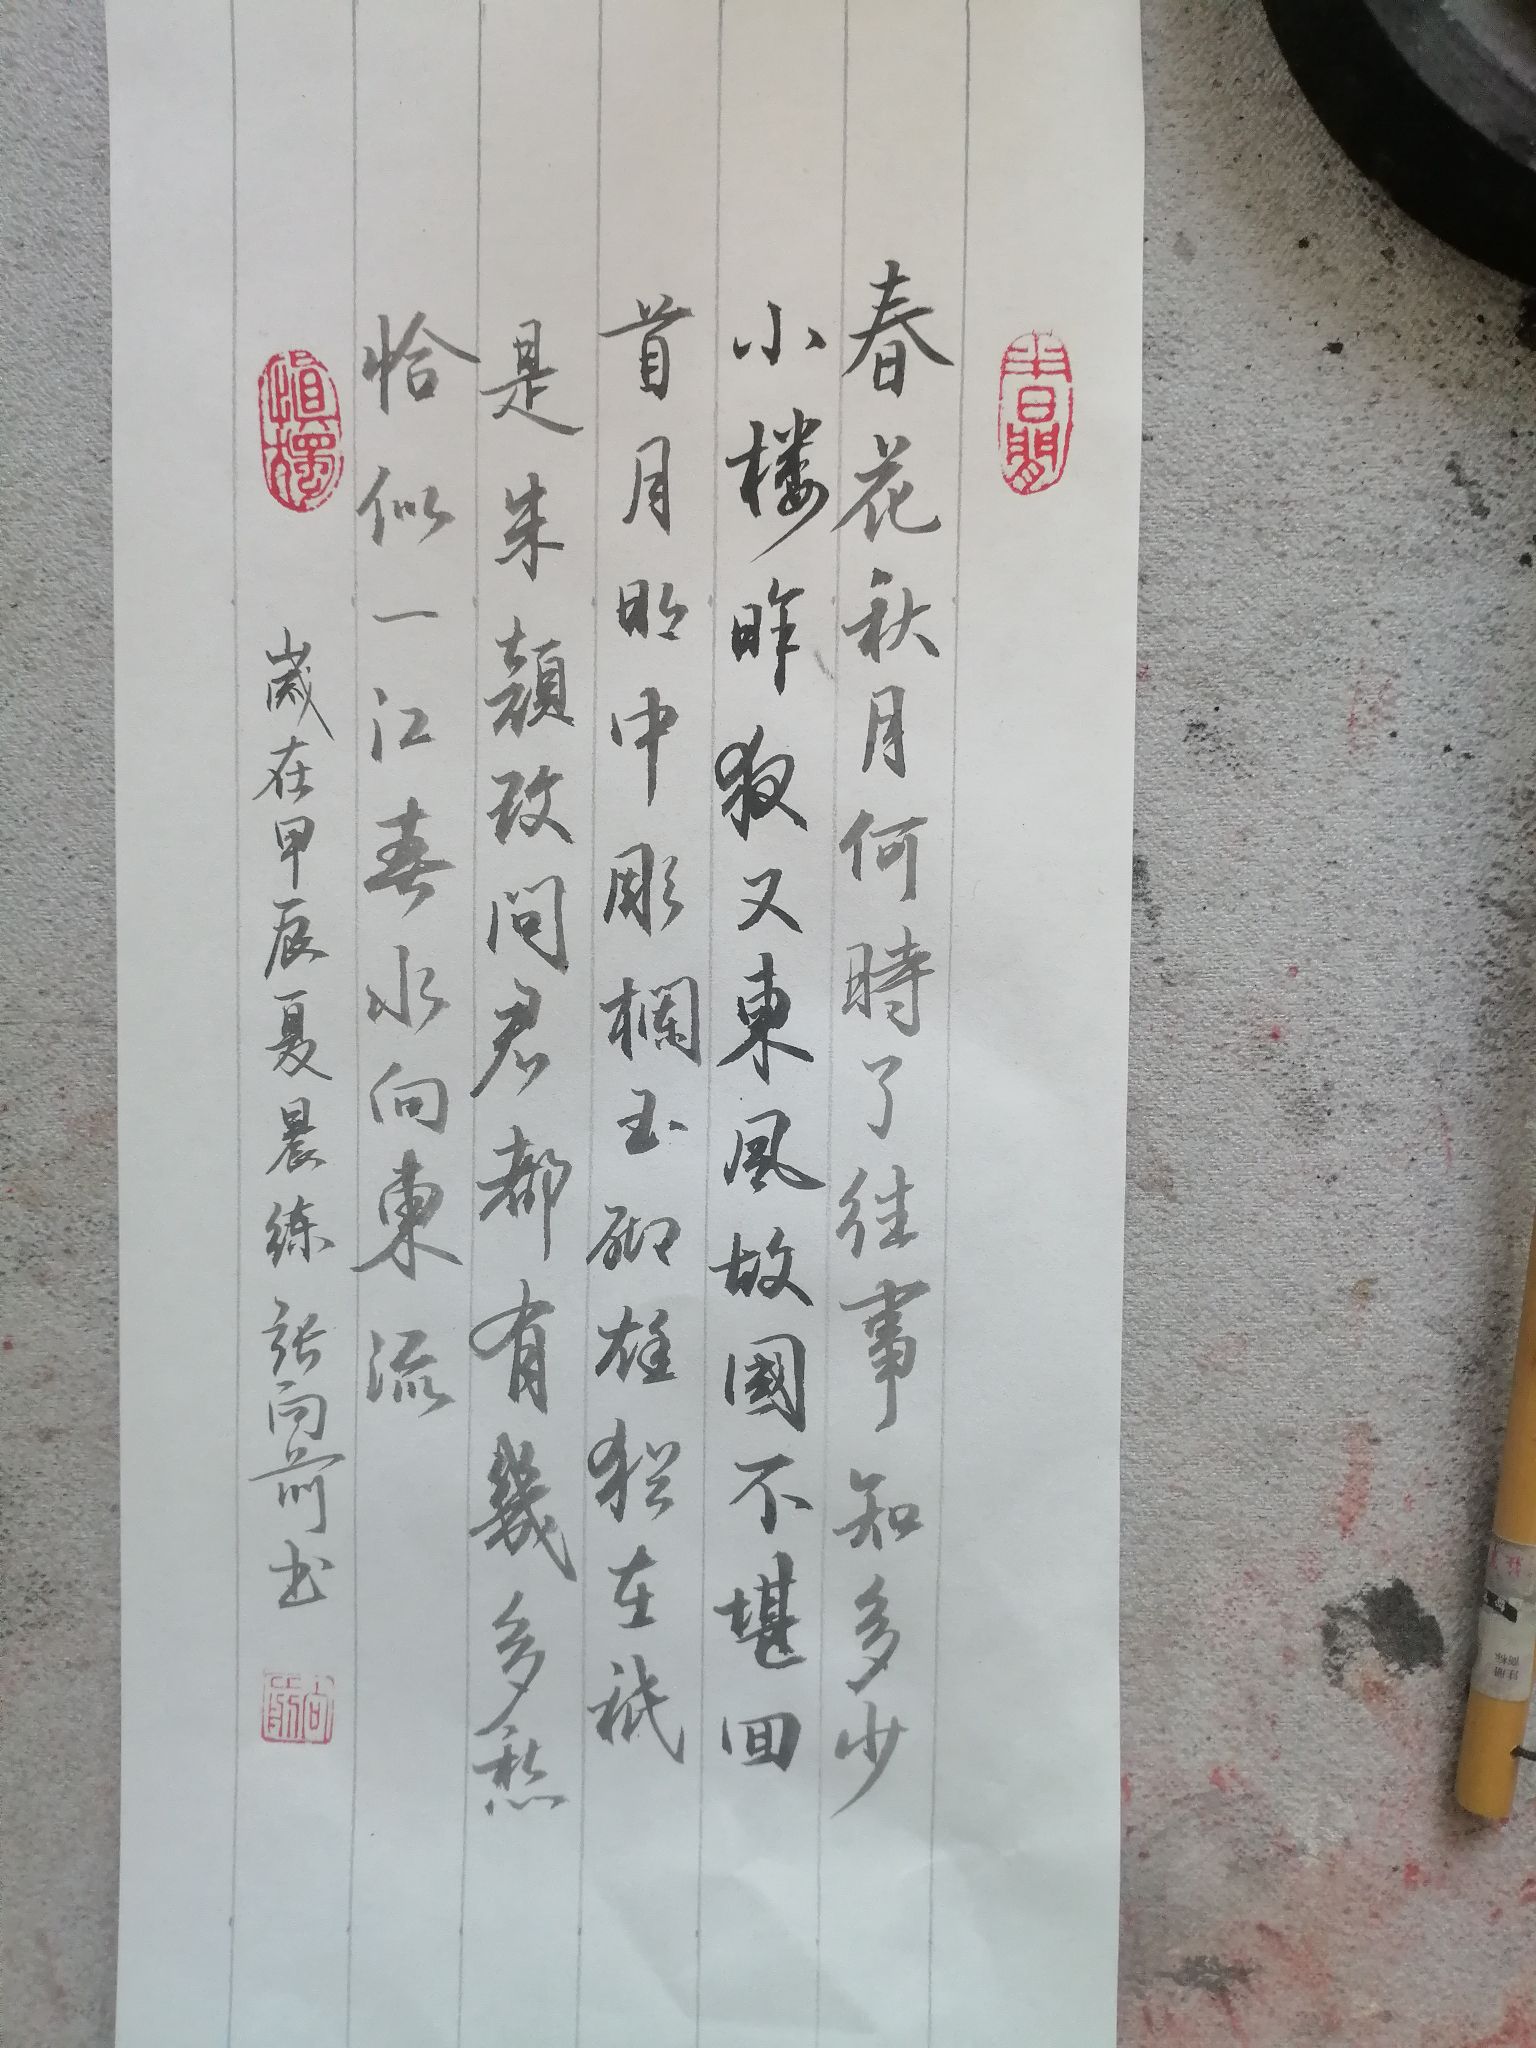 半日閒
春花秋月何時了往事知多少
小楼昨夜又東風故國不堪回
首月明中彫欄玉砌雄犹在祇
是朱顔改问君都有幾多愁
恰似一江春水向東流
歲在甲辰夏晨练 张向前书
向前